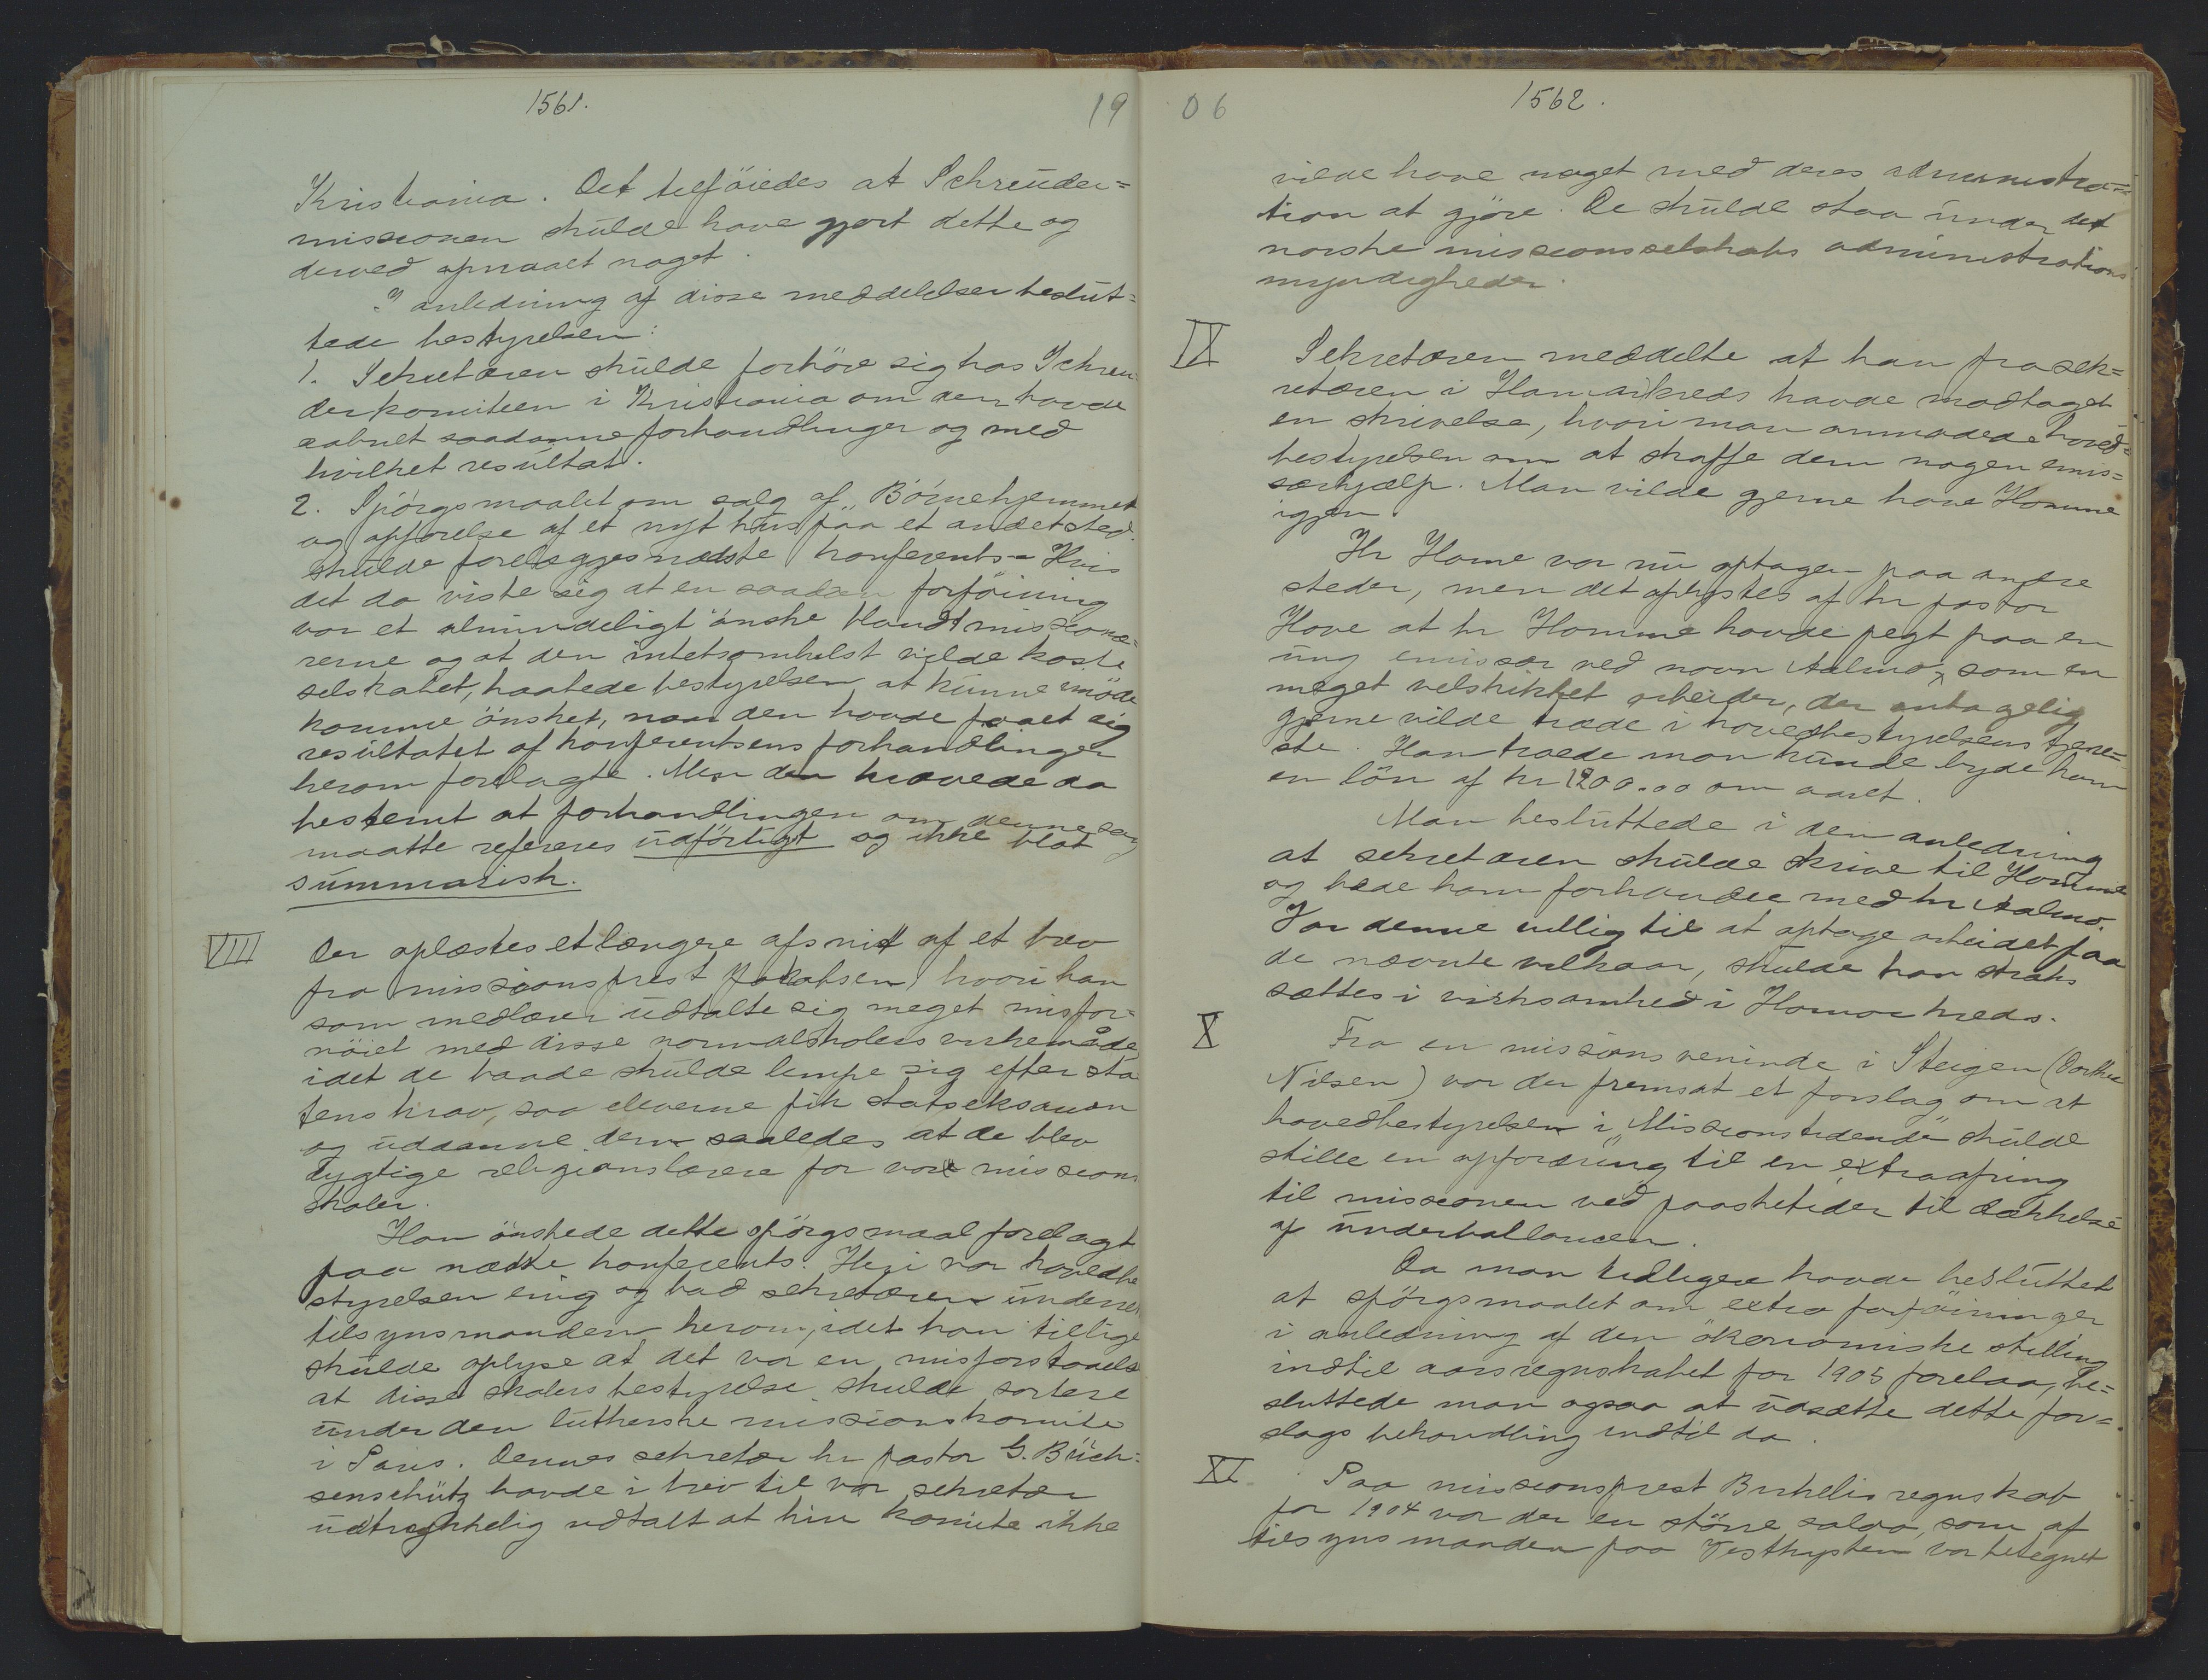 1561.
19
Kristiania. Det tilföiedes at Schreuder=
missionen skulde have gjort dette og
derved opnaaet noget.
I anledning af disse meddelelser beslut=
tede bestyrelsen:
1. Sekretæren skulde forhöre sig hos Schreu=
derkomiteen i Kristiania om den havde
aabnet saadanne forhandlinger og med
hvilket resultat.
2. Spörgsmaalet om salg af "Börnehjemmet
og opförelse af et nyt hus paa et andet sted
skulde forelægges næste konferents. Hvis
det da viste sig at en saadan forföining
var et almindeligt önske blandt missionæ=
rerne og at den intetsomhelst vilde koste
selskabet, haabede bestyrelsen at kunne imöde
komme önsket, naar den havde faaet sig
resultatet af konferentsens forhandlinger
herom forelagte. Men den krævede da
bestemt at forhandlingen om denne sag
maatte refereres udförligt og ikke blot
summarisk.
VIII
Der oplæstes et længere afsnit af et brev
fra missionsprest Jakobsen, hvori han
som medlærer udtalte sig meget misfor=
nöiet med disse normalskolers virkemåde
idet de baade skulde lempe sig efter sta
tens krav, saa eleverne fik statseksamen
og uddanne dem saaledes at de blev
dygtige religionslærere for vore missions
skoler.
Han önskede dette spörgsmaal forelagt
paa næste konferents. Heri var hovedbe
styrelsen enig og bad sekretæren underret
tilsynsmanden herom, idet han tillige
skulde oplyse at det var en misforstaaelse
at disse skolers bestyrelse skulde sortere
under den lutherske missionskomite
i Paris. Dennes sekretær hr pastor G. Büch=
senschütz havde i brev til vor sekretær
udtrykkelig udtalt at hin komite ikke
06
1562.
vilde have noget med deres administra=
tion at gjöre. De skulde staa under det
norske missionsselskabs administrations
myndigheder.
IX
Sekretæren meddelte at han fra sek=
retæren i Hamarkreds havde modtaget
en skrivelse, hvori man anmodede hoved=
bestyrelsen om at skaffe dem nogen emis=
særhjælp. Man vilde gjerne have Homme
igjen.
Hr Home var nu optagen paa andre
steder, men det oplystes af hr pastor
Hove at hr Homme havde pegt paa en
ung emissær ved navn Aalmo, som en
meget velskikket arbeider, der antagelig
gjerne vilde træde i hovedbestyrelsens tjene=
ste. Han troede man kunde byde ham
en lön af kr 1200.00 om aaret.
Man besluttede i den anledning
at sekretæren skulde skrive til Homme
og bede ham forhandle med hr Aalmo.
Var denne villig til at optage arbeidet paa
de nævnte vilkaar, skulde han straks
sættes i virksomhed i Hamar kreds.
X
Fra en missionsveninde i Steigen (Dorthea
Nilsen) var der fremsat et forslag om at
hovedbestyrelsen i "Missionstidende" skulde
stille en opfordring til en extraofring
til missionen ved paasketider til dækkelse
af underballancen.
Da man tidligere havde besluttet
at spörgsmaalet om extra forföininger
i anledning af den ökonomiske stilling
indtil aarsregnskabet for 1905 forelaa, be=
sluttede man ogsaa at udsætte dette for=
slags behandling indtil da.
XI
Paa missionsprest Birkelis regnskab
for 1904 var der en större saldo, som af
tilsynsmanden paa Vestkysten var betegnet